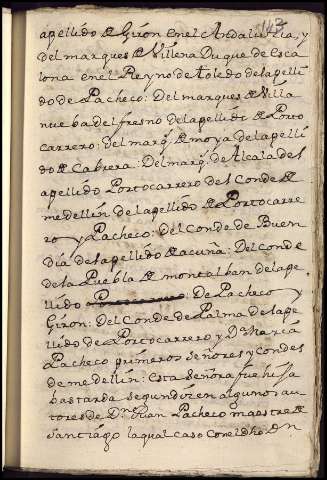 143
apellido de Giron en el Andaluzia, y
del marques de Villena Duque de Esca
lona en el Reyno de toledo del apelli
do de Pacheco: Del marques de Villa
nueba del fresno del apellido de Porto
carrero: del marq.s de moya del apelli
do de Cabrera: Del marq.s de Alcala del
apellido Portocarrero del Conde de
medellin del apellido de Portocarre
ro y Pacheco: del Conde de Buen
dia del apellido de acuña: Del Conde
de la Puebla de montalban del ape
llido : De Pacheco y
Giron: Del Conde de Palma del ape
llido de Portocarrero y D.a Maria
Pacheco primeros señores y condes
de medellin: esta señora fue hija
bastarda segun dizen algunos au
tores de D.n Juan Pacheco maestre de
Santiago la qual caso con el dho D.n